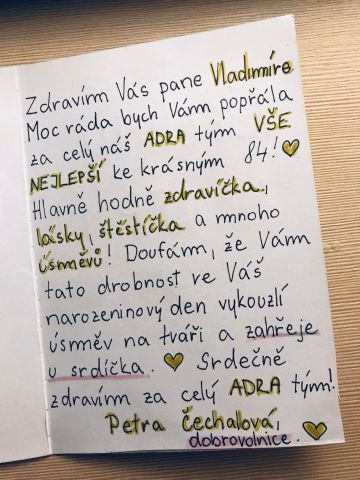 Zdravím Vás pane Vladimíre
Moc ráda bych Vám popřála
za celý náš ADRA tým VŠE
NEJLEPŠÍ ke krásným 84! ♥
Hlavně hodně zdravíčka,
lásky, štěstíčka a mnoho
úsměvů! Doufám, že Vám
tato drobnost ve Váš
narozeninový den vykouzlí
úsměv na tváři a zahřeje
u srdíčka. ♥ Srdečně
zdravím za celý ADRA tým!
Petra Čechalová,
dobrovolnice. ♥